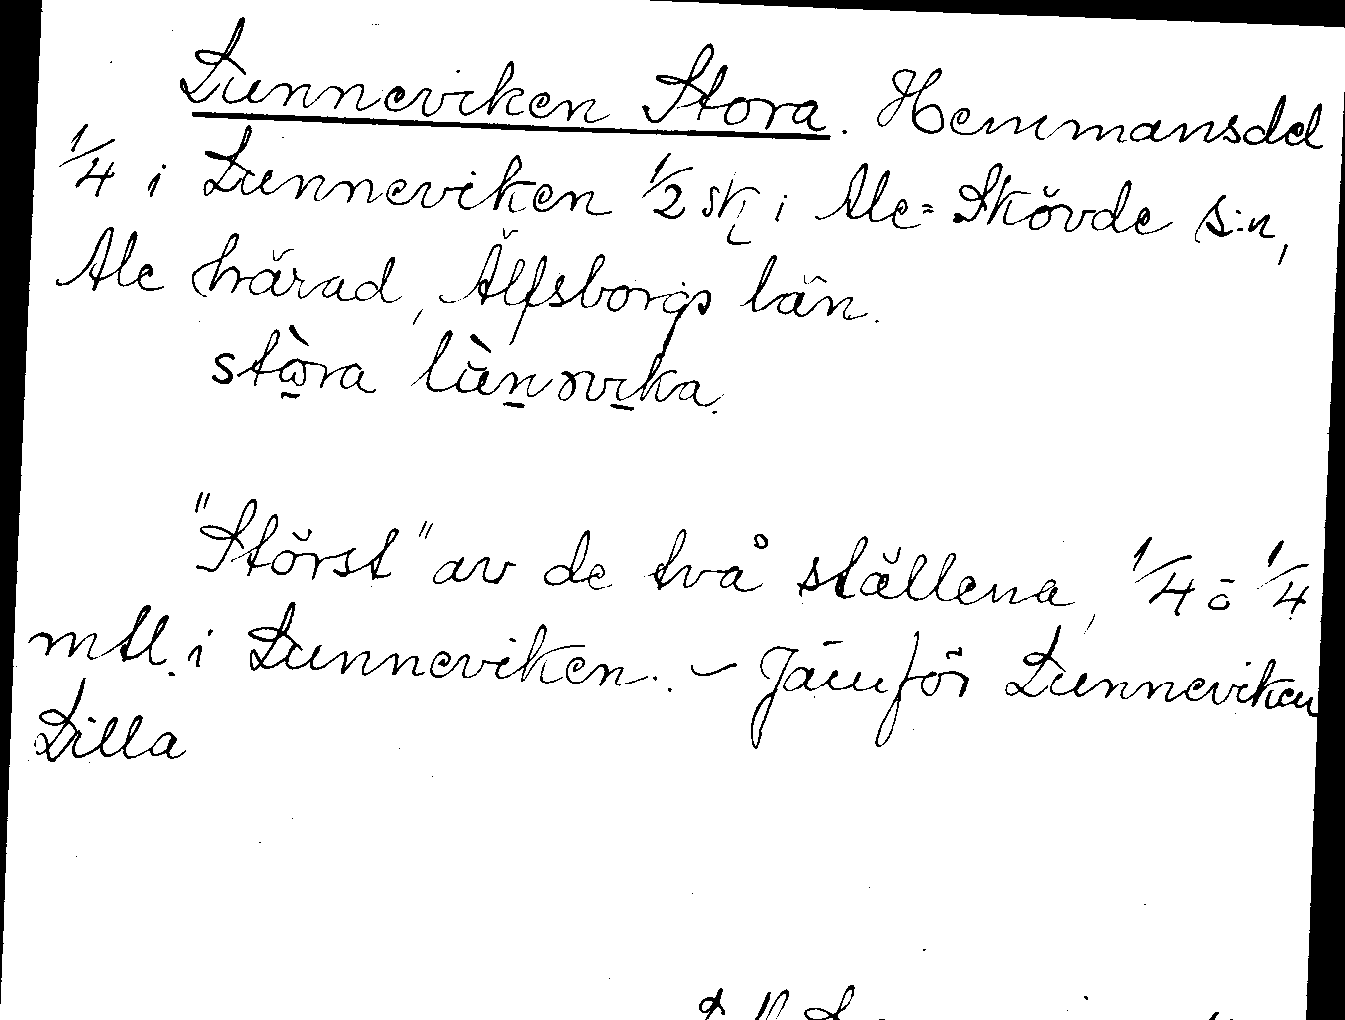 Lunneviken Stora. Hemmansdel
1/4 i Lunneviken 1/2 sk i Ale-Skövde s:n,
Ale härad, Älfsborgs län.
stòra lùnəvika.
"Störst" av de två ställena, 1/4 o 1/4
mtl. i Lunneviken. - Jämför Lunneviken
Lilla